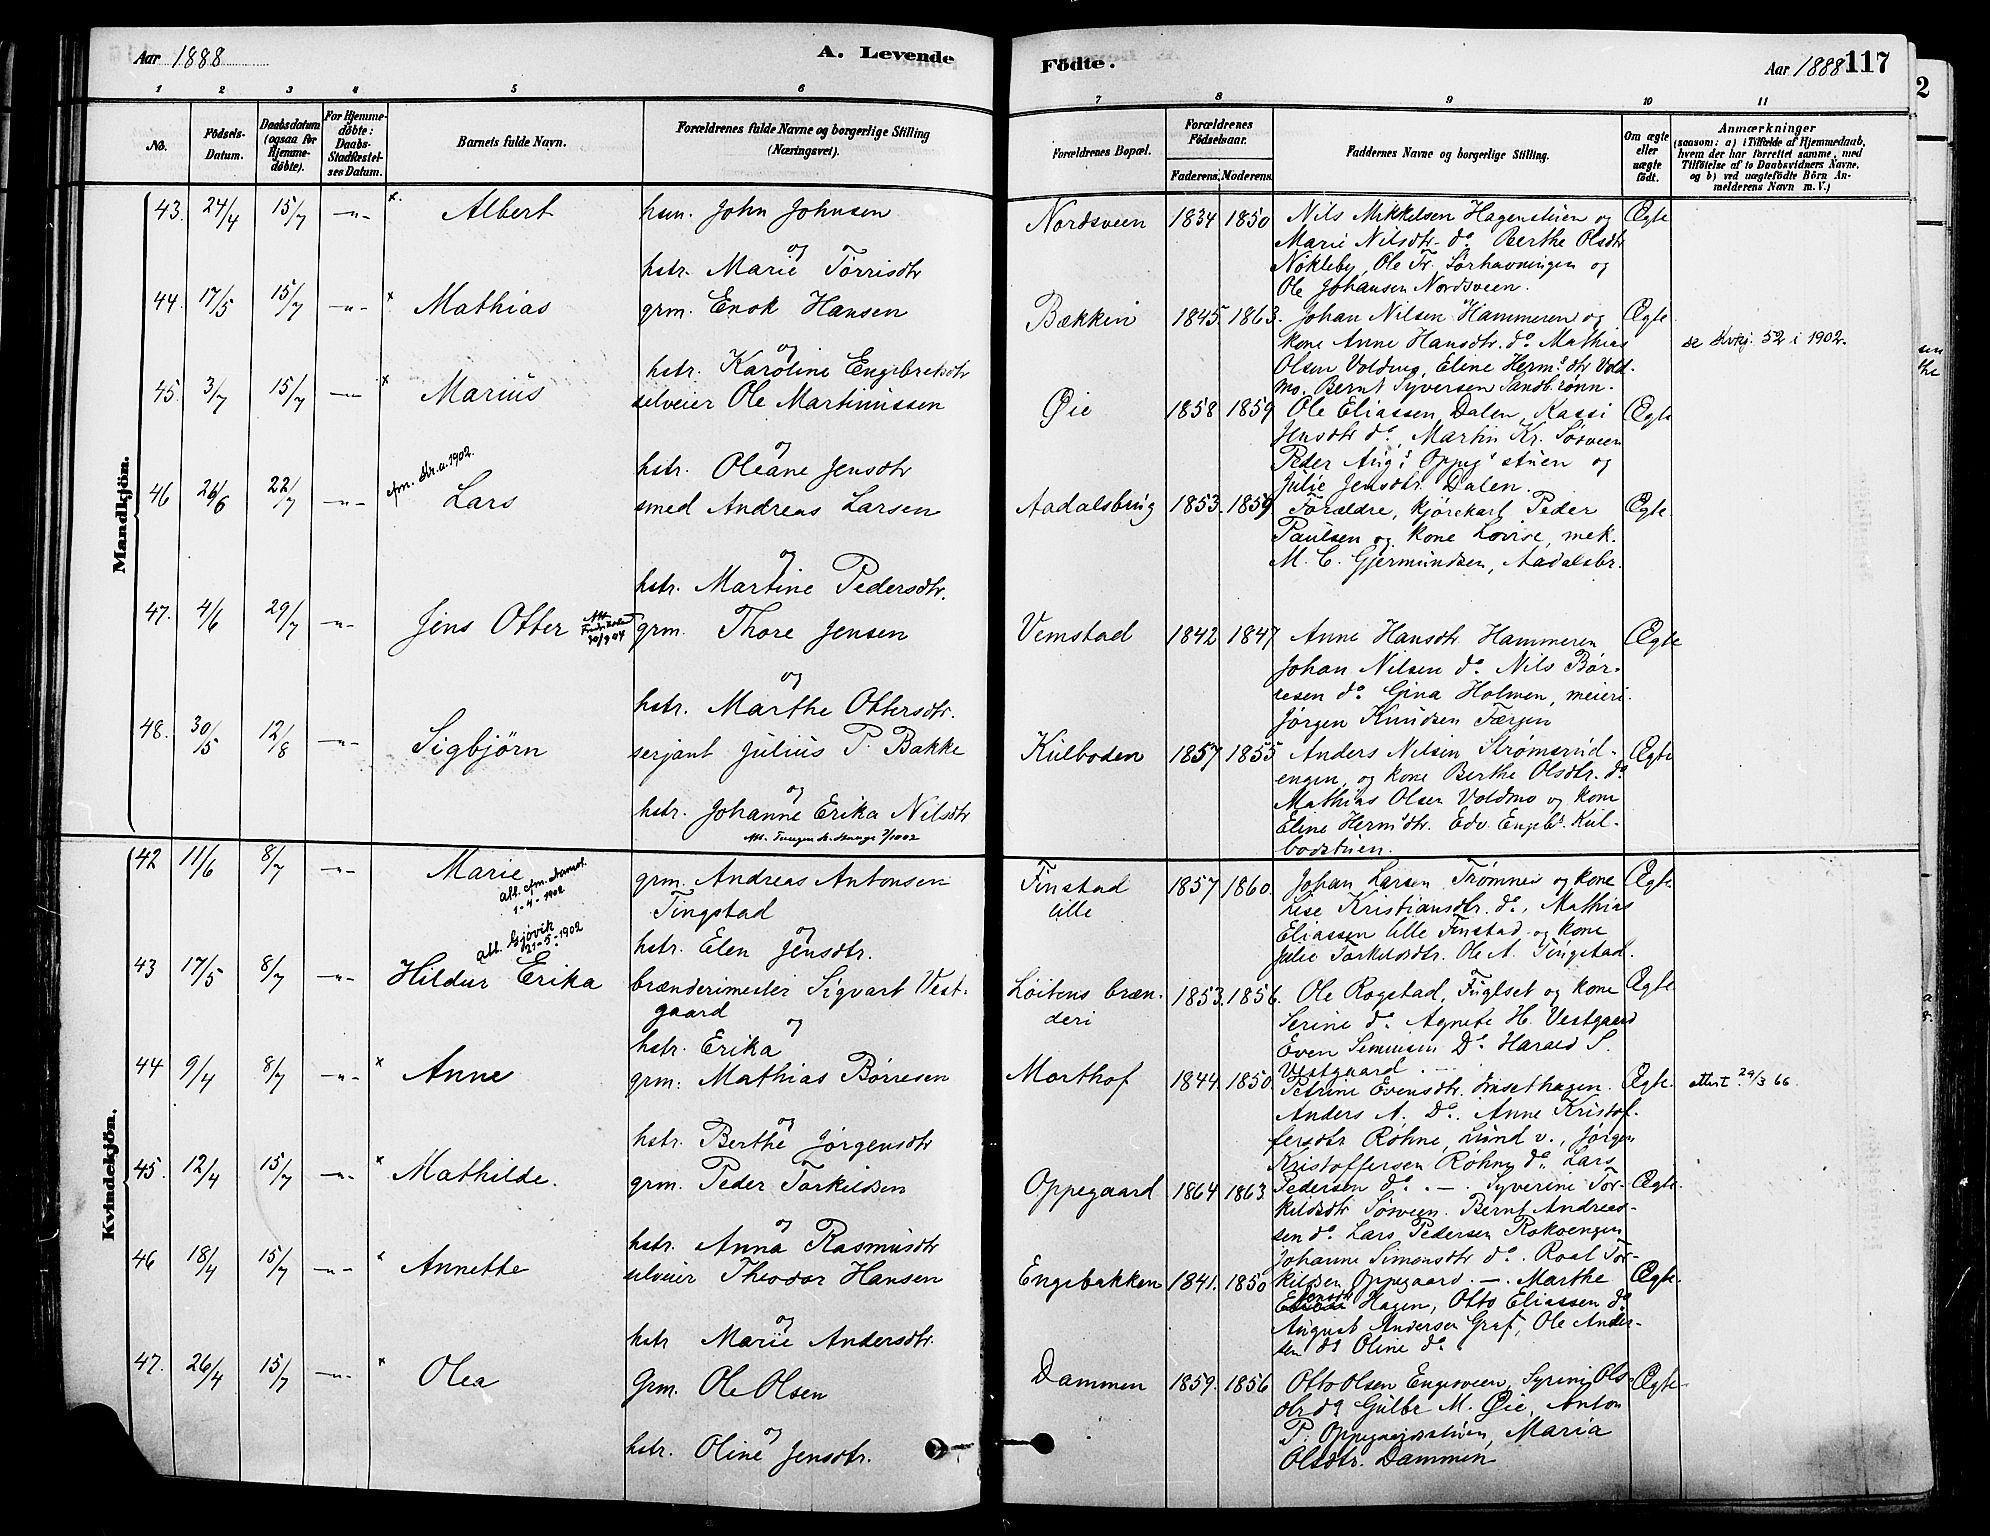 Aar 1888
A. Levende
Födte.
Aar 1888 117
2
1 2 3 4 5 6
7 8 9 10 11
No.
Födsels-
Datum.
Daabsdatum
(ogsaa for
Hjemme-
döbte).
For Hjemme-
döbte:
Daabs-
Stadfæstel-
ses Datum.
Barnets fulde Navn.
Forældrenes fulde Navne og borgerlige Stilling
(Næringsvei).
Forældrenes Bopæl.
Forældrenes
Födselsaar.
Faderens. Moderens.
Faddernes Navne og borgerlige Stilling.
Om ægte
eller
uægte
födt.
Anmærkninger
(saasom: a) i Tilfælde af Hjemmedaab,
hvem der har forrettet samme, med
Tilföielse af to Daabsvidners Navne,
og b) ved uægtefödte Börn An-
melderens Navn m. V.)
Mandkjön.
43. 24/4 15/7 -"- Albert
hsm. John Johnsen
og
hstr. Marie Torrisdtr
Nordsveen 1834 1850
Nils Mikkelsen Hagenstuen og
Marie Nilsdtr. do. Berthe Olsdtr
Nøkleby, Ole Fr. Sørhavningen og
Ole Johansen Nordsveen.
Ægte
44. 17/5 15/7 -"- Mathias
grm. Enok Hansen
og
hstr. Karoline Engebretsdtr
Bækken 1845. 1863.
Johan Nilsen Hammeren og
kone Anne Hansdtr. do. Mathias
Olsen Voldmo, Eline Herm.s dtr Vold-
mo. Bernt Syversen Sandbrønn.
Ægte
se 52 i 1902.
45. 3/7 15/7 -"- Marius
selveier Ole Martinussen
og
hstr. Oleane Jensdtr
Øie 1858 1859
Ole Eliassen Dalen, Kassi
Jensdtr do., Martin Kr. Sørveen
Peder Aug.s Oppeg.s stuen og
Julie Jensdtr. Dalen.
Ægte
46 26/6 22/7 -"- Lars
1902.
smed Andreas Larsen
og
hstr. Martine Pedersdtr.
Aadalsbrug 1853. 1859
Forældre, kjørekarl Peder
Paulsen og kone Lovise, mek.
M. C. Gjermundsen, Aadalsbr.
Ægte.
47. 4/6 29/7 -"- Jens Otter
30/9 04
grm. Thore Jensen
og
hstr. Marthe Ottersdtr.
Vemstad 1842 1847
Anne Hansdtr. Hammeren
Johan Nilsen do. Nils Bør-
resen do. Gina Holmen, meieri
Jørgen Knudsen Færgen
Ægte
48. 30/5 12/8 -"- Sigbjörn
serjant Julius P. Bakke
og
hstr. Johanne Erika Nilsdtr
Kulboden 1857 1855
Anders Nilsen Strømsrud-
engen, og kone Berthe Olsdtr. do
Mathias Olsen Voldmo og kone
Eline Herm.s dtr. Edv. Engeb.s Kul-
bodstuen.
Ægte
Kvindekjön.
42 11/6 8/7 -"- Marie
1-4-1902
grm. Andreas Antonsen
Tingstad
og
hstr. Elen Jensdtr.
Finstad
lille
1857 1860.
Johan Larsen Trømnes og kone
Lise Kristiansdtr. do., Mathias
Eliassen lille Finstad og kone
Julie Torkildsdtr. Ole A. Tingstad.
Ægte
43 17/5 8/7 -"- Hildur Erika
att. Gjøvik
21-5-1902
brænderimester Sigvart Vest-
gaard
og
hstr. Erika
Løitens bræn-
deri
1853. 1856.
Ole Rogstad, Fuglset og kone
Serine do. Agnete H. Vestgaard
Even Simensen Do. Harald S.
Vestgaard.
Ægte
44 9/4 8/7 -"- Anne
grm. Mathias Børresen
og
hstr. Berthe Jørgensdtr
Morthof 1844. 1850.
Petrine Evensdtr.
Anders A. Do. Anne Kristof-
fersdtr Røhne, Lund v., Jørgen
Kristoffersen Røhne do. Lars
Pedersen do. —
Ægte.
attest 29/3 66
45. 12/4 15/7 -"- Mathilde.
grm. Peder Torkildsen
og
hstr. Anna Rasmusdtr
Oppegaard 1864 1863
Syverine Tor-
kildsdtr Sørveen. Bernt Andreas-
sen do. Lars Pedersen Rokoengen
Johanne Simonsdtr do. Roal Tor-
kildsen Oppegaard. —
Ægte.
46 18/4 15/7 -"- Annette
selveier Theodor Hansen
og
hstr Marie Andersdtr.
Engebakken 1841. 1850
Marthe
Jensdtr
Hagen, Otto Eliassen do
August Andersen Graf, Ole Ander-
sen do Oline do
Ægte.
47. 26/4 15/7 -"- Olea
Grm. Ole Olsen
og
hstr. Oline Jensdtr.
Dammen 1859. 1856
Otto Olsen Engesveen, Syrine Ols-
dtr do Gulbr M. Øie, Anton
P. Oppegaardsstuen, Maria
Olsdtr. Dammen
Ægte